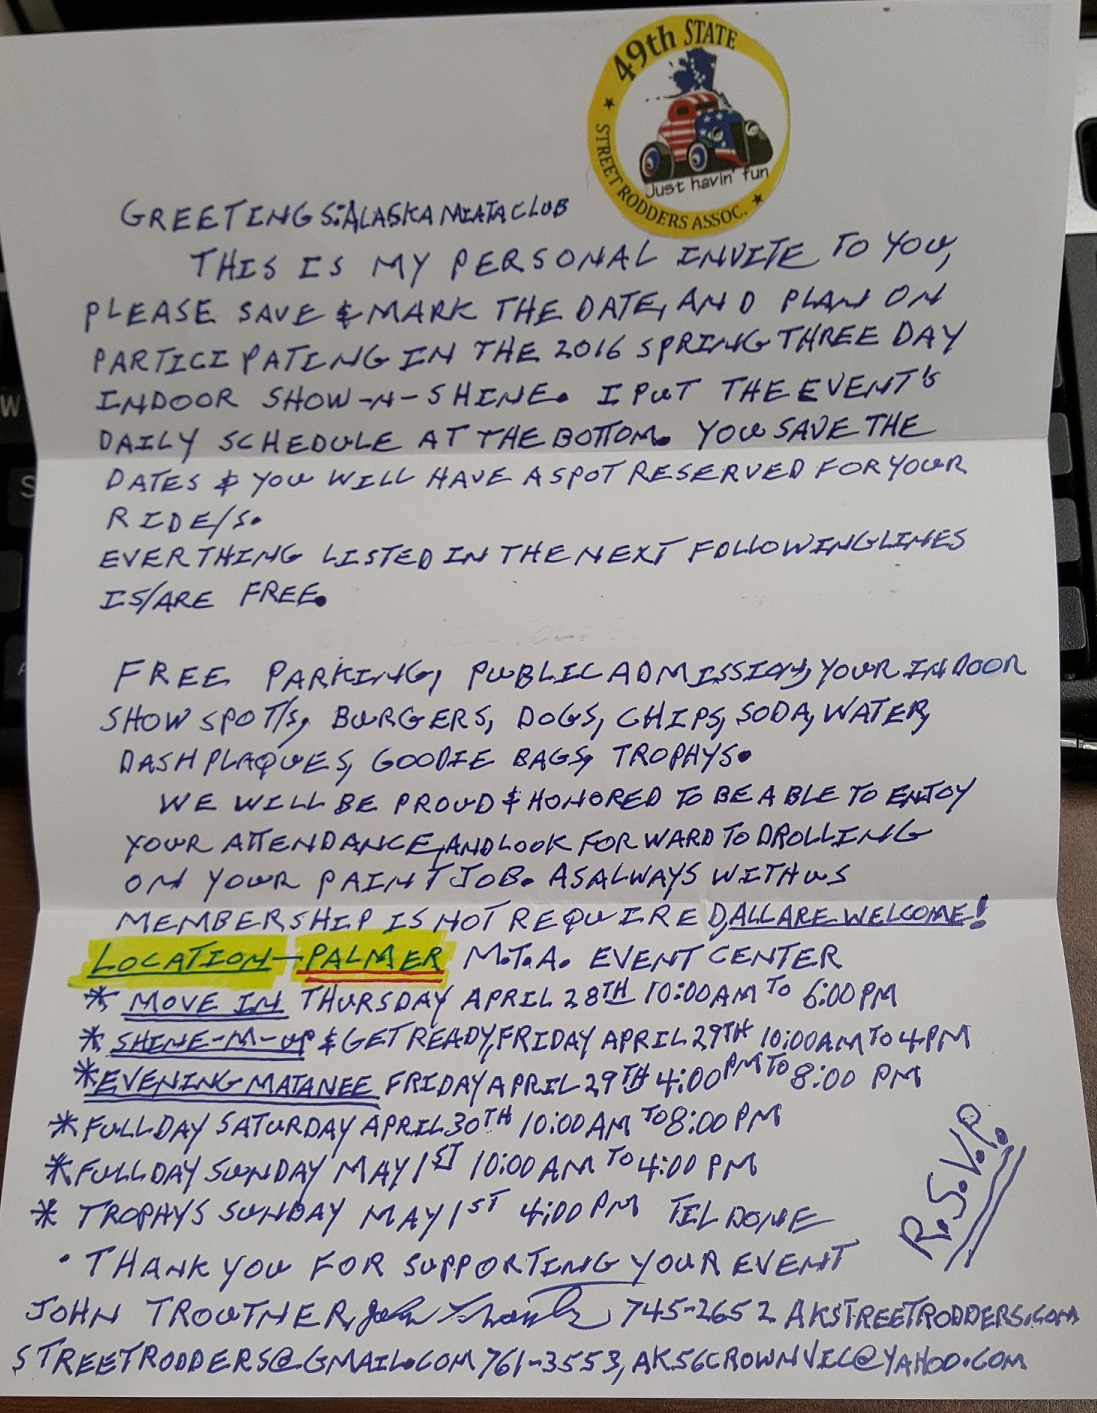 49th STATE
STREET RODDERS ASSOC.
Just havin' fun
GREETINGS: ALASKA MIATA CLUB
THIS IS MY PERSONAL INVITE TO YOU,
PLEASE SAVE & MARK THE DATE, AND PLAN ON
PARTICIPATING IN THE 2016 SPRING THREE DAY
INDOOR SHOW-N-SHINE. I PUT THE EVENT'S
DAILY SCHEDULE AT THE BOTTOM. YOU SAVE THE
DATES & YOU WILL HAVE A SPOT RESERVED FOR YOUR
RIDE/S.
EVERTHING LISTED IN THE NEXT FOLLOWING LINES
IS/ARE FREE.
FREE PARKING, PUBLIC ADMISSION, YOUR INDOOR
SHOW SPOT/S, BURGERS, DOGS, CHIPS, SODA, WATER,
DASH PLAQUES, GOODIE BAGS, TROPHYS.
WE WILL BE PROUD & HONORED TO BE ABLE TO ENJOY
YOUR ATTENDANCE, AND LOOK FORWARD TO DROLLING
ON YOUR PAINT JOB. AS ALWAYS WITH US
MEMBERSHIP IS NOT REQUIRED, ALL ARE WELCOME!
LOCATION - PALMER M.T.A. EVENT CENTER
* MOVE IN THURSDAY APRIL 28TH 10:00 AM TO 6:00 PM
* SHINE-M-UP & GET READY, FRIDAY APRIL 29TH 10:00 AM TO 4 PM
* EVENING MATANEE FRIDAY APRIL 29TH 4:00 PM TO 8:00 PM
* FULL DAY SATURDAY APRIL 30TH 10:00 AM TO 8:00 PM
* FULL DAY SUNDAY MAY 1ST 10:00 AM TO 4:00 PM
* TROPAYS SUNDAY MAY 1ST 4:00 PM TIL DONE
R.S.V.P.
• THANK YOU FOR SUPPORTING YOUR EVENT
JOHN TROUTNER, 745-2652 AKSTREETRODDERS.COM
STREETRODDERS@GMAIL.COM 761-3553, AK56CROWNVIC@YAHOO.COM